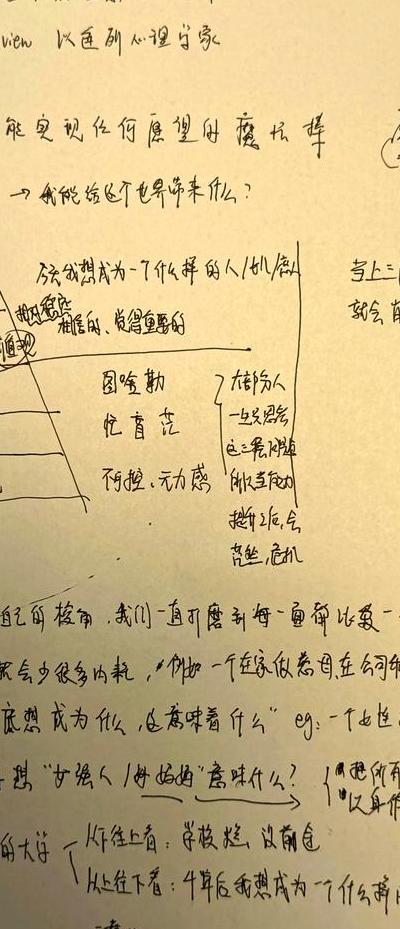 view 以色列心理学家
能实现任何愿望的魔法棒
→ 我能给这个世界带来什么?
我想成为一个什么样的人/
相信的、觉得重要的
当上三
就会
图啥勒
大部分人
忙盲茫
一生只思会
这三层问题
不可控、无力感
所以当能力
提升之后,会
茫然,危机
自己的核, 我们一直打磨到每一面都比较一
会少很多内耗, 例如一个在家做慈母,在公司
底想成为什么,这意味着什么" eg: 一个女性
想"女强人/好妈妈"意味什么?
把所有
以身作
的大学
从下往上看: 学校, 没前途
从上往下看: 4年后我想成为一个什么样